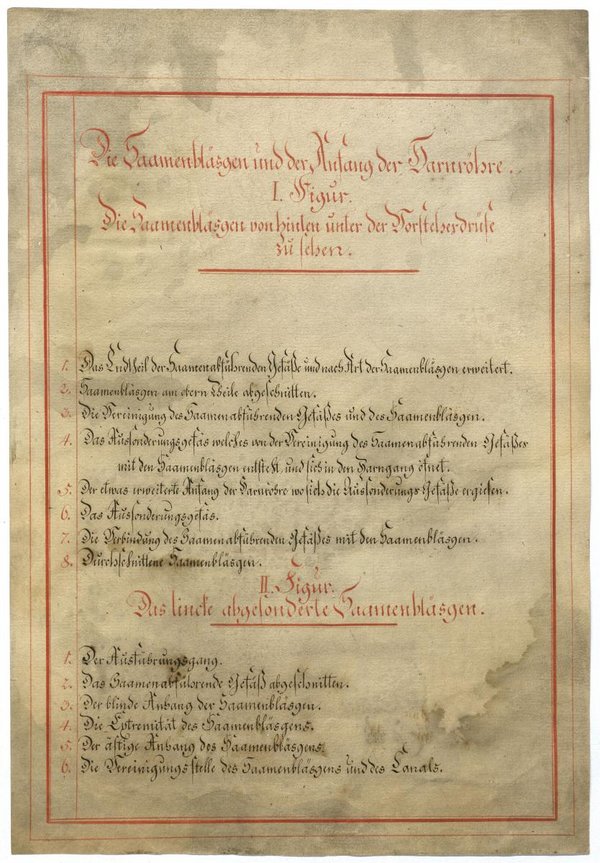 Die Saamenbläsgen und der Anfang der Harnröhre.
I. Figur.
Die Saamenbläsgen von hinten unter der Vorsteherdrüse
zu sehen.
1. Das Endtheil der Saamenabführenden Gefäße und nach Art der Saamenbläsgen erweitert.
2. Saamenbläsgen am obern Theile abgeschnitten.
3. Die Vereinigung des Saamenabführenden Gefäßes und des Saamenbläsgen.
4. Das Aussonderungsgefäs welches von der Vereinigung des Saamenabführenden Gefäßes
mit den Saamenbläsgen entsteht, und sich in den Harngang öfnet.
5. Der etwas erweiterte Anfang der Harnröhre wo sich die Aussonderungs Gefäße ergießen.
6. Das Aussonderungsgefäs.
7. Die Verbindung des Saamenabführenden Gefäßes mit den Saamenbläsgen.
8. Durchschnittene Saamenbläsgen.
II. Figur.
Das lincke abgesonderte Saamenbläsgen.
1. Der Ausführungsgang.
2. Das Saamenabführende Gefäß abgeschnitten.
3. Der blinde Anhang der Saamenbläsgen.
4. Die Extremität des Saamenbläsgens.
5. Der ästige Anhang des Saamenbläsgens.
6. Die Vereinigungsstelle des Saamenbläsgens und des Canals.